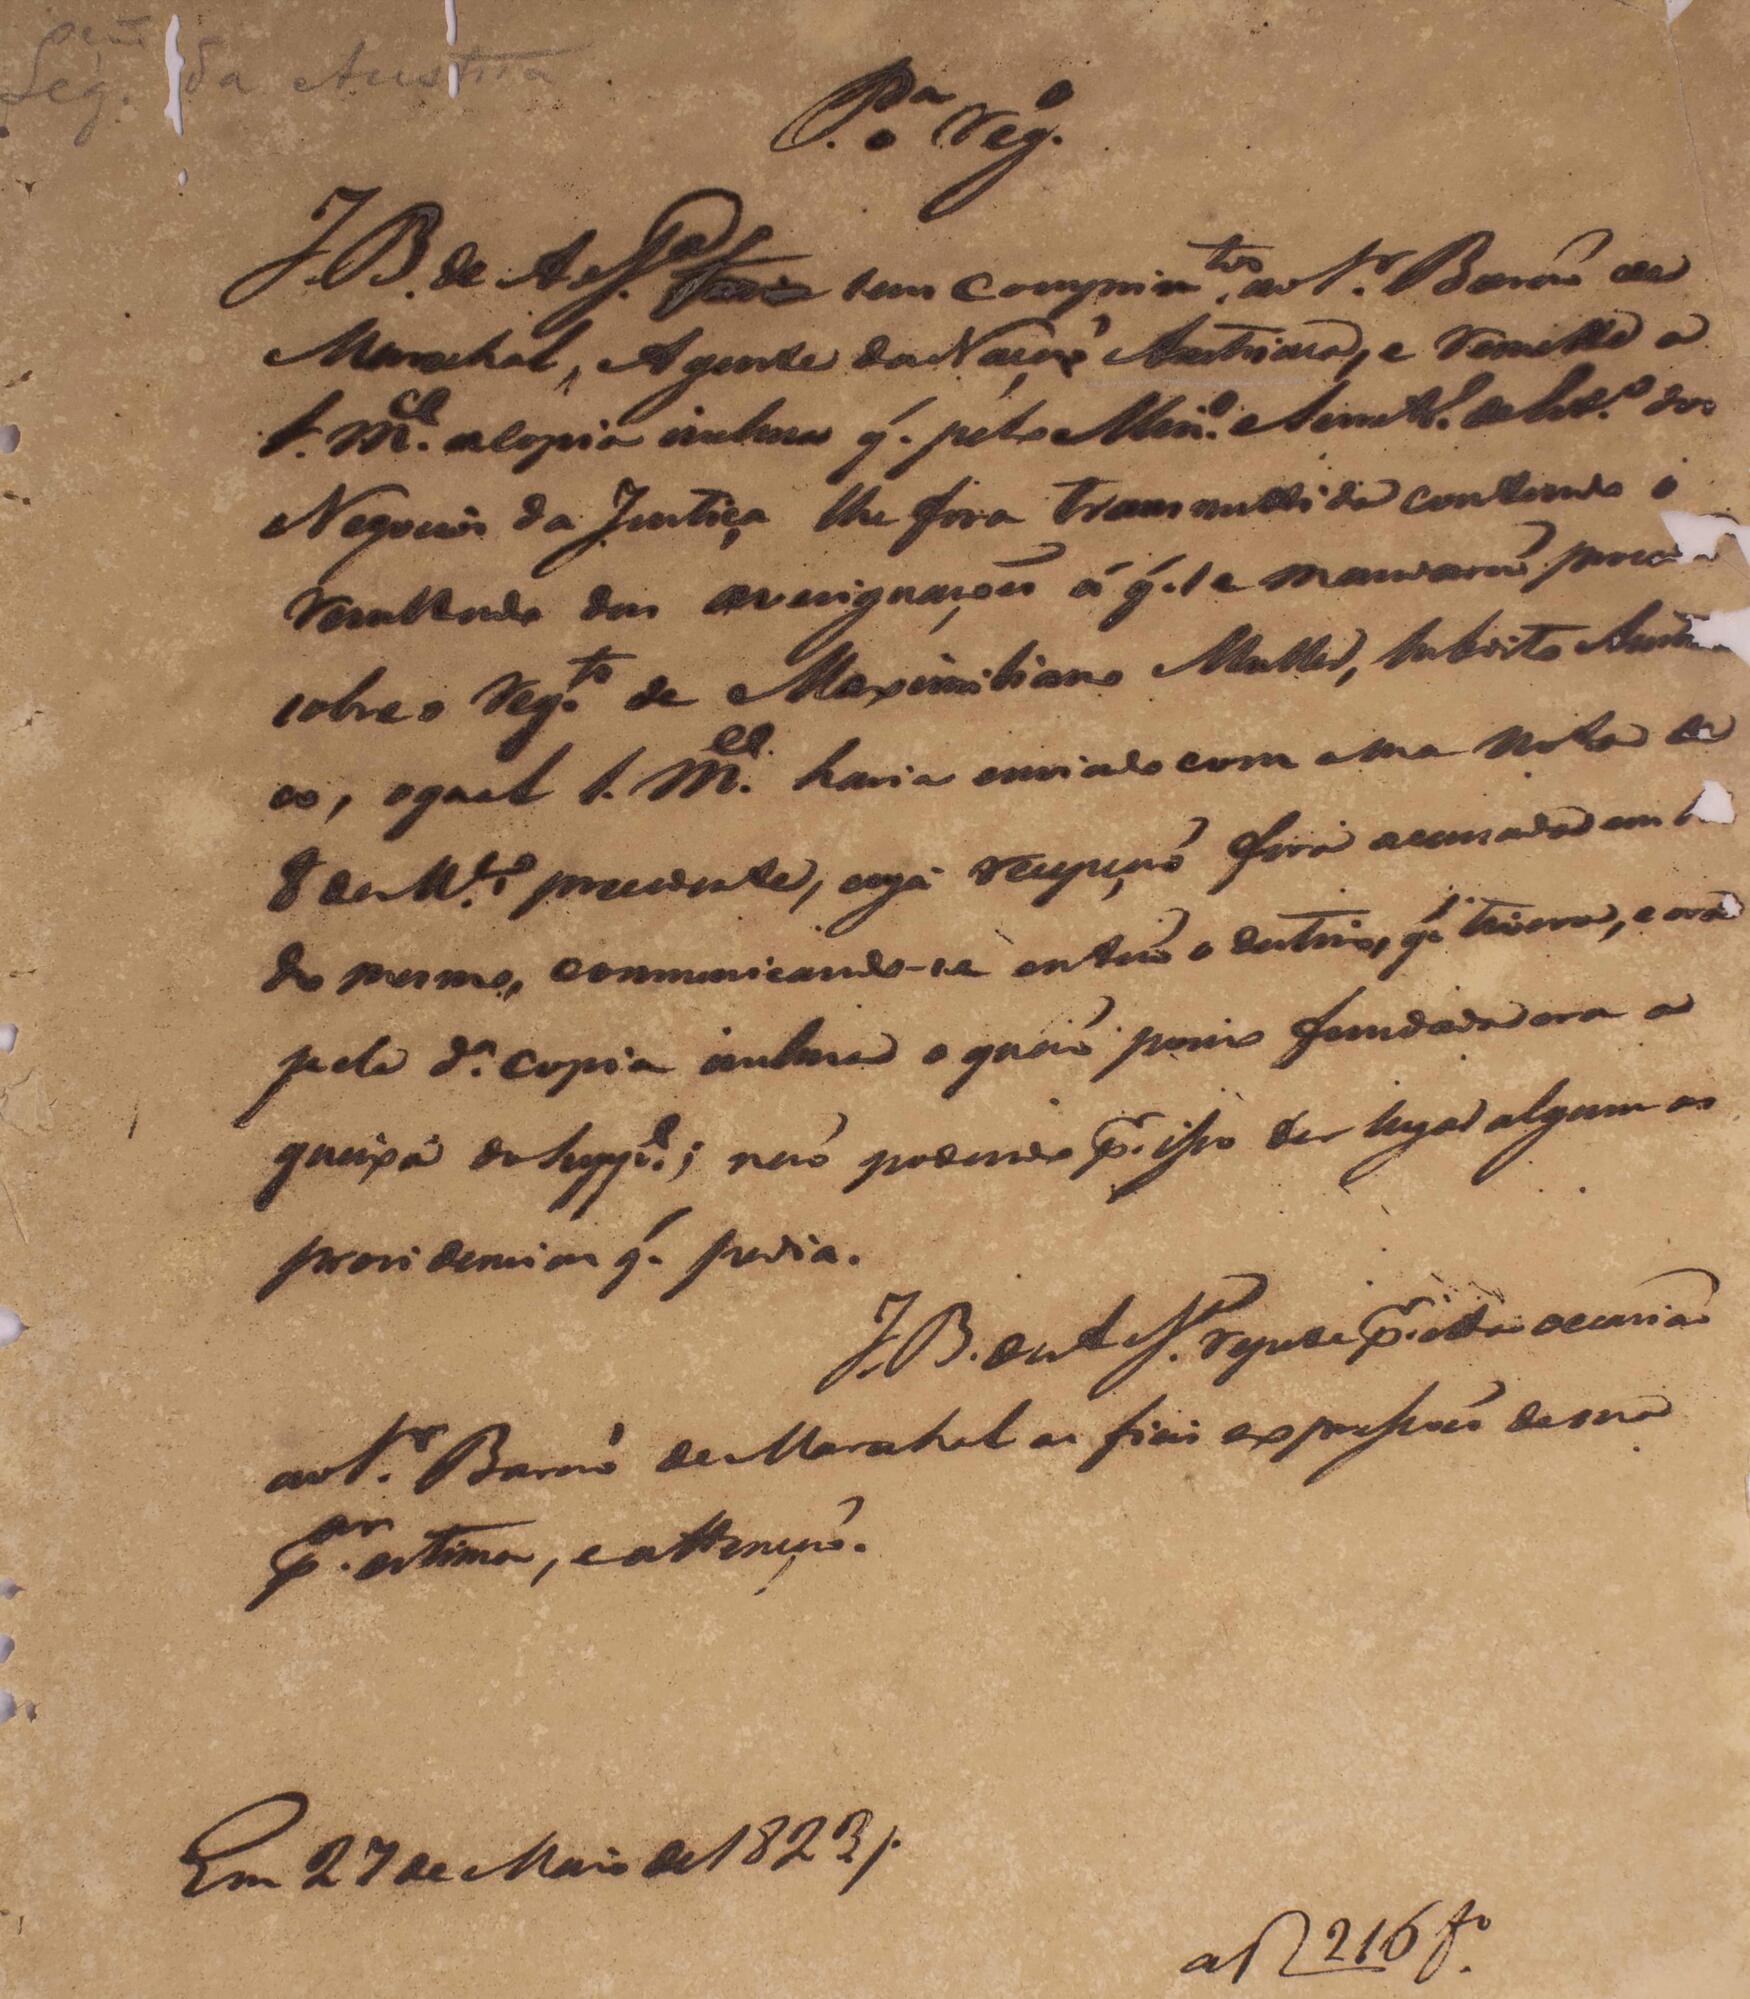 Leg. da Austria
P.a o Reg.o
J. B. de A. S. tem comprim.tos ao S.r Barão de
Mareschal, Agente da Nação Austriaca, e remette a
S. M.ce a Copia inclusa q. pelo Min.o e Secret. de Est.o dos
Negocios da Justiça lhe fora transmittida contendo o
resultado das averiguações á q. se mandarão proce
sobre o req.to de Maximiliano Muller, subdito Austria
co, o qual S. M.ce havia enviado com uma nota de
8 de M.ço precedente, cuja recepção fora accusada em
do mesmo, communicando-se então o destino, q. tivera, e verá
pela d.a copia inclusa o quão pouco fundada era a
queixa do supp.e; não podendo p.r isso dar lugar algum as
providencias q. pedia.
J. B. de A. S. repete p.r esta occasião
ao S.r Barão de Mareschal as fieis expressões de sua
p.ar estima, e attenção.
Em 27 de Maio de 1823/.
a f 216 f.o